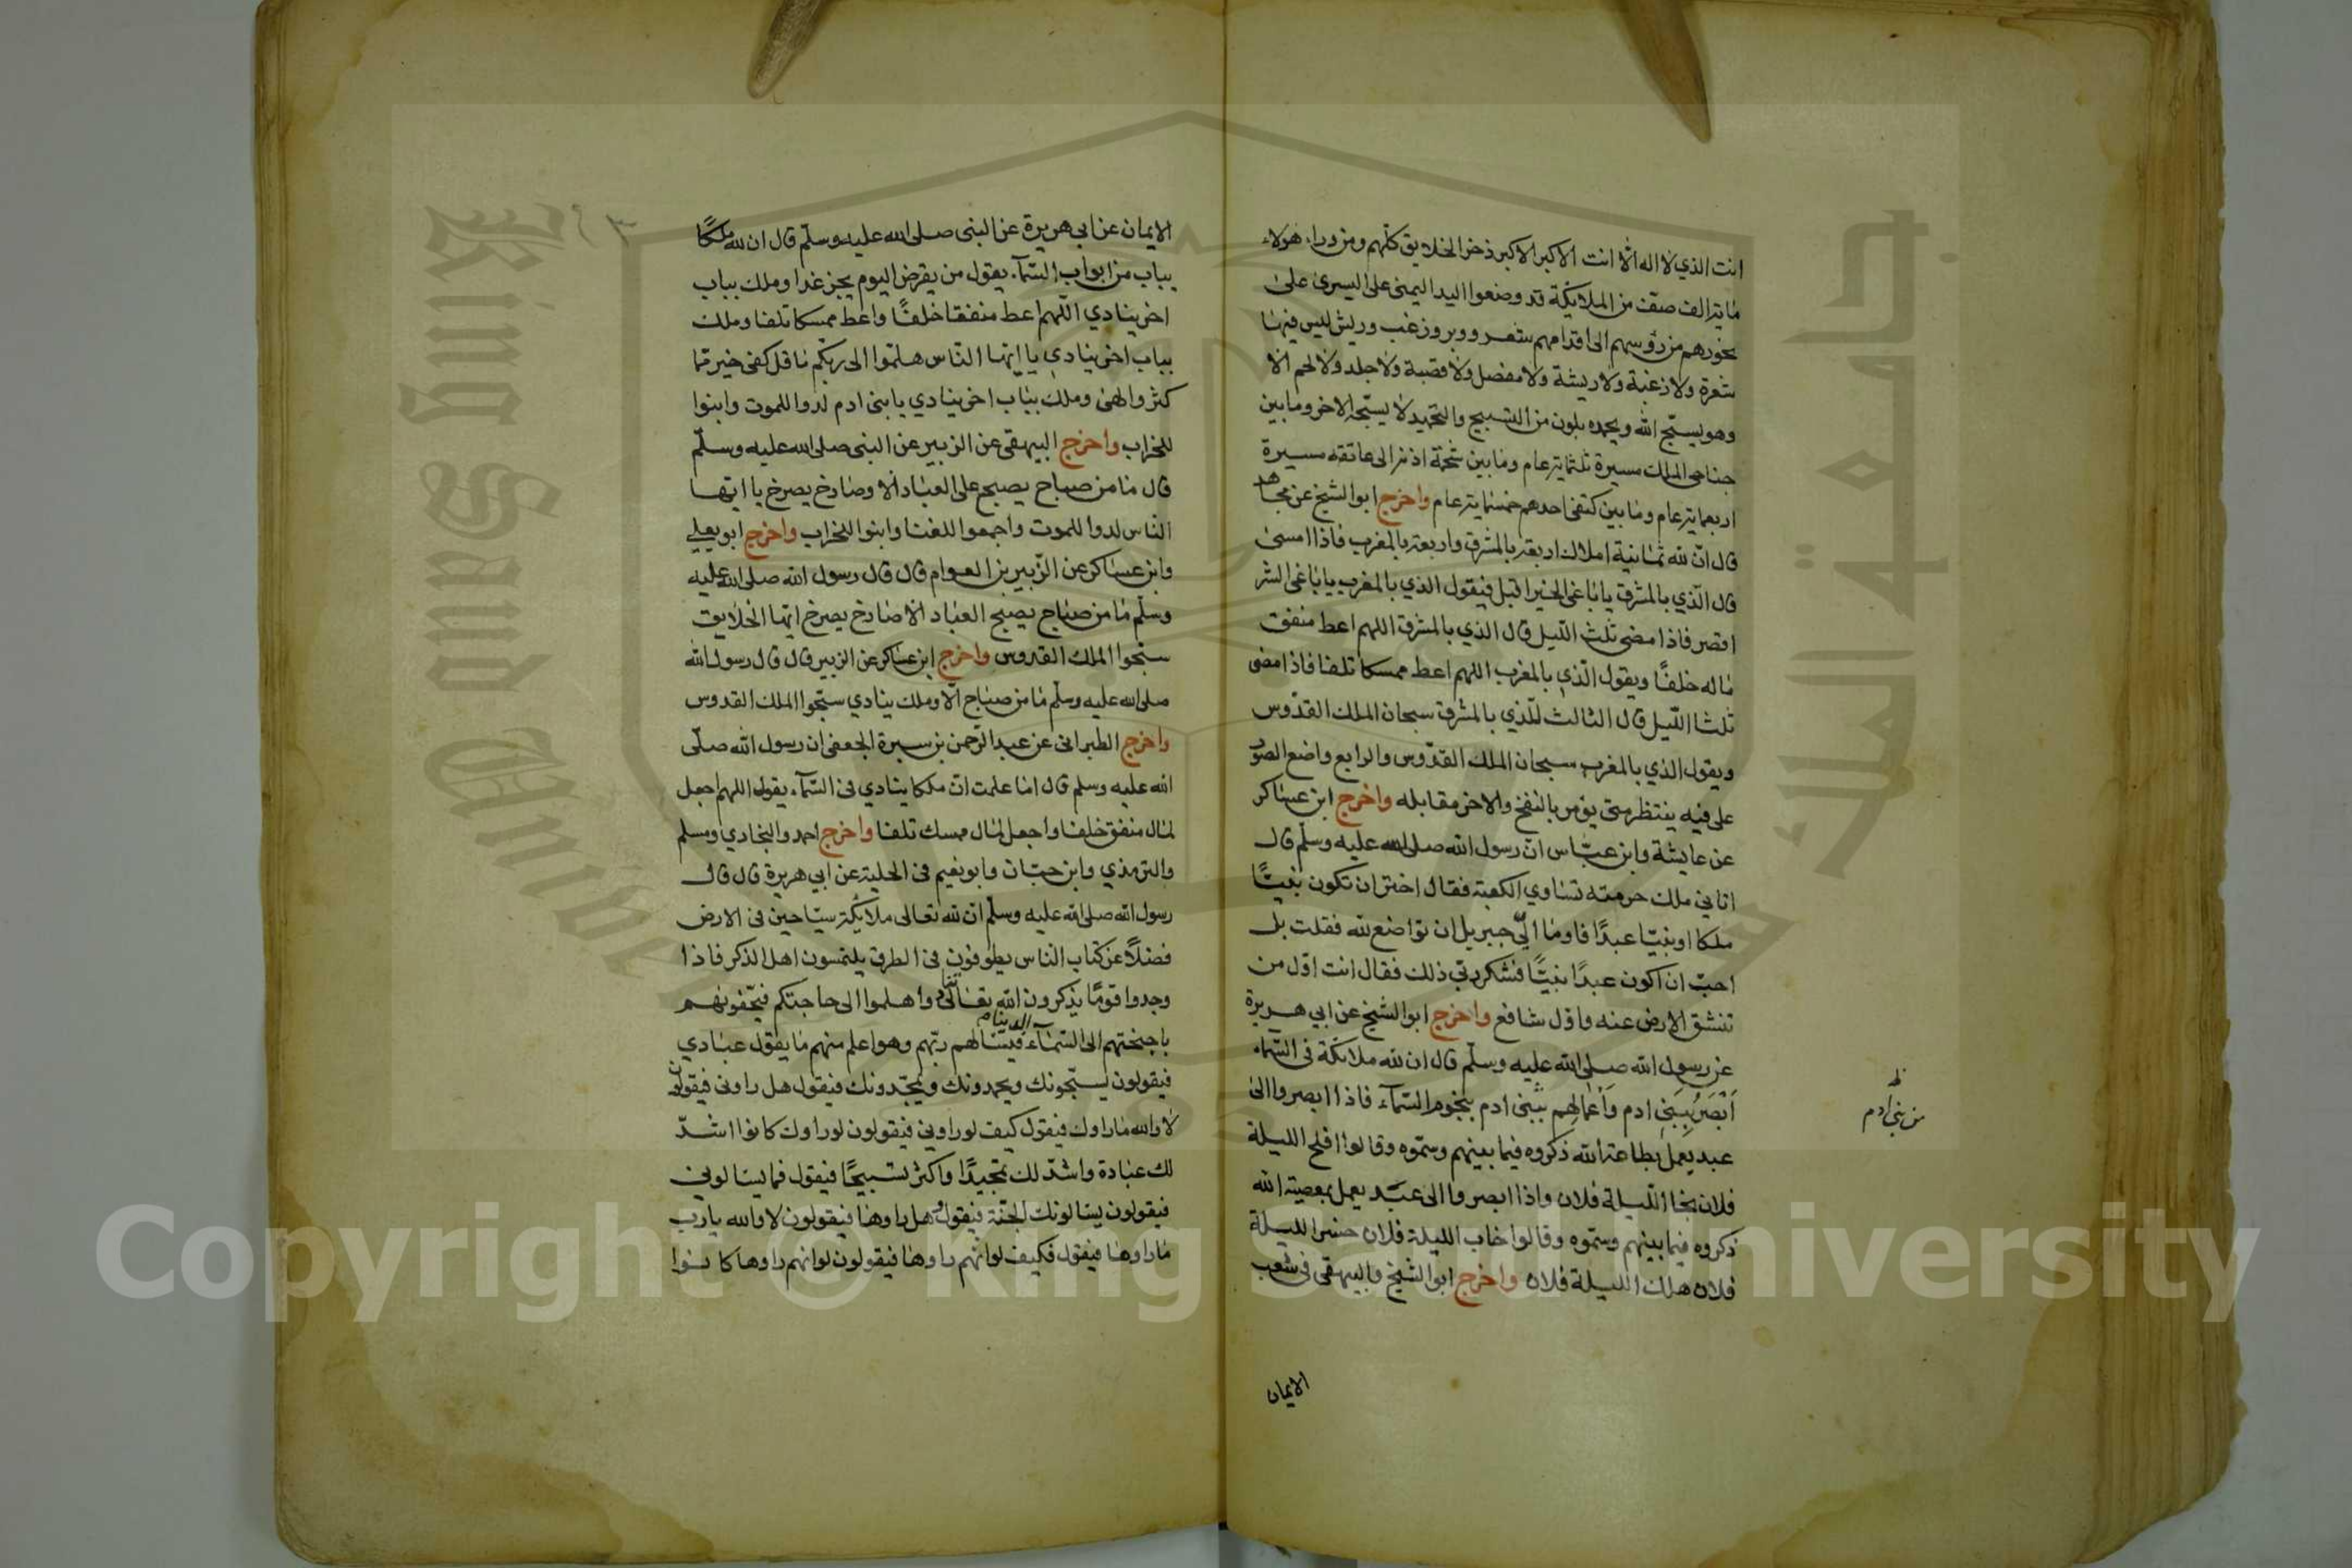 انت الذي لا اله الا انت الاكبر الاكبر ذخر الخلايق كلهم ومن وراء هولاء
ماية الف صف من الملائكة قد وضعوا اليد اليمنى على اليسرى على
نحورهم من رؤسهم الى اقدامهم شعر ووبر وزغب وريش ليس فيها
شعرة ولا زغبة ولا ريشة ولا مفصل ولا قصبة ولا جلد ولا لحم الا
وهو يسبح الله ويحمده بلون من التسبيح والتحميد لا يسبحه الاخر وما بين
جناحي الملك مسيرة ثلثماية عام وما بين شحمة اذنه الى عاتقه مسيرة
اربعماية عام وما بين كتفي احدهم خمسماية عام واخرج ابو الشيخ عن مجاهد
قال ان لله ثمانية املاك اربعة بالمشرق واربعة بالمغرب فاذا امسى
قال الذي بالمشرق يا باغي الخير اقبل فيقول الذي بالمغرب يا باغي الشر
اقصر فاذا مضى ثلث الليل قال الذي بالمشرق اللهم اعط منفق
ماله خلفا ويقول الذي بالمغرب اللهم اعط ممسكا تلفا فاذا مضى
ثلثا الليل قال الثالث للذي بالمشرق سبحان الملك القدوس
ويقول الذي بالمغرب سبحان الملك القدوس والرابع واضع الصور
على فيه ينتظر متى يؤمر بالنفخ والاخر مقابله واخرج ابن عساكر
عن عايشة وابن عباس ان رسول الله صلى الله عليه وسلم قال
اتاني ملك حرمته تساوي الكعبة فقال اختر ان تكون نبيا
ملكا او نبيا عبدا فاوما الي جبريل ان تواضع لله فقلت بل
احب ان اكون عبدا نبيا فشكر ربي ذلك فقال انت اول من
تنشق الارض عنه واول شافع واخرج ابو الشيخ عن ابي هريرة
عن رسول الله صلى الله عليه وسلم قال ان لله ملائكة في السماء
اَبْصَرُ بِبَنِي ادم وَاَعْمَالِهِم ببني ادم بنجوم السماء فاذا ابصروا الى
عبد يعمل بطاعة الله ذكروه فيما بينهم وسموه وقالوا افلح الليلة
فلان نجا الليلة فلان واذا ابصروا الى عبد يعمل بمعصية الله
ذكروه فيما بينهم وسموه وقالوا خاب الليلة فلان خسر الليلة
فلان هلك الليلة فلان واخرج ابو الشيخ والبيهقي في شعب
الايمان
من بني ادم
الايمان عن ابي هريرة عن النبي صلى الله عليه وسلم قال ان لله ملكًا
بباب من ابواب السمآء يقول من يقرض اليوم يجز غدا وملك بباب
اخر ينادي اللهم اعط منفقا خلفًا واعط ممسكا تلفا وملك
بباب اخر ينادي يا ايها الناس هلموا الى ربكم ما قل كفى خير مما
كثر والهى وملك بباب اخر ينادي يا بني ادم لدوا للموت وابنوا
للخراب واخرج البيهقي عن الزبير عن النبي صلى الله عليه وسلم
قال ما من صباح يصبح على العباد الا وصارخ يصرخ يا ايها
الناس لدوا للموت واجمعوا للفنا وابنوا للخراب واخرج ابو يعلي
وابن عساكر عن الزبير بن العوام قال قال رسول الله صلى الله عليه
وسلم ما من صباح يصبح العباد الا صارخ يصرخ ايها الخلايق
سبحوا الملك القدوس واخرج ابن عساكر عن الزبير قال قال رسول الله
صلى الله عليه وسلم ما من صباح الا وملك ينادي سبحوا الملك القدوس
واخرج الطبراني عن عبد الرحمن بن سبرة الجعفي ان رسول الله صلى
الله عليه وسلم قال اما علمت ان ملكا ينادي في السمآء يقول اللهم اجعل
لمال منفق خلفا واجعل لمال ممسك تلفا واخرج احمد والبخاري ومسلم
والترمذي وابن حبان وابو نعيم في الحلية عن ابي هريرة قال قال
رسول الله صلى الله عليه وسلم ان لله تعالى ملائكة سياحين في الارض
فضلًا عن كتاب الناس يطوفون في الطرق يلتمسون اهل الذكر فاذا
وجدوا قومًا يذكرون الله تعالى تنادوا هلموا الى حاجتكم فيحفونهم
باجنحتهم الى السمآء الدنيا فيسالهم ربهم وهو اعلم منهم ما يقول عبادي
فيقولون يسبحونك ويحمدونك ويمجدونك فيقول هل راوني فيقولون
لا والله ما راوك فيقول كيف لو راوني فيقولون لو راوك كانوا اشد
لك عبادة واشد لك تمجيدًا واكثر تسبيحًا فيقول فما يسالوني
فيقولون يسالونك الجنة فيقول وهل راوها فيقولون لا والله يا رب
ما راوها فيقول فكيف لو انهم راوها فيقولون لو انهم راوها كانوا
King Saud University
جامعة الملك
Copyright © King Saud University